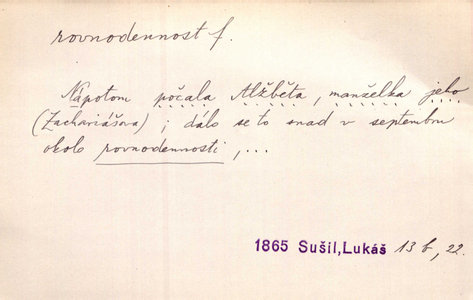 rovnodennost f.
Nápotom počala Alžběta, manželka jeho
(Zachariášova) ; dálo se to snad v septembru
okolo rovnodennosti ,...
1865 Sušil, Lukáš 13 b, 22.